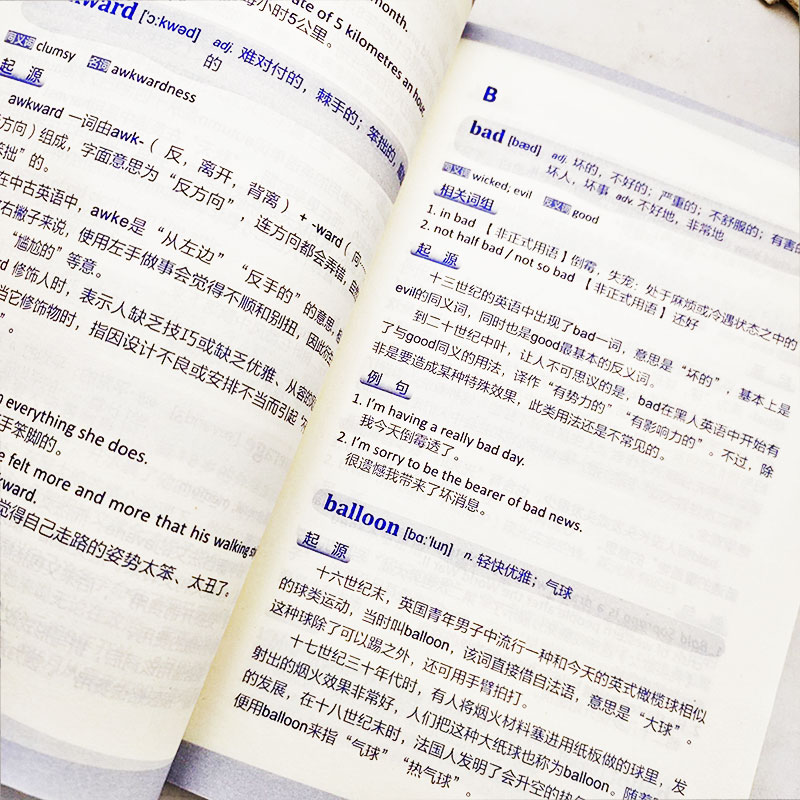 month.
ate of 5 kilometres an hour.
每小时5公里。
ward ['ɔ:kwəd] adj. 难对付的，棘手的；笨拙的，
的
同义词 clumsy 名词 awkwardness
起 源
awkward 一词由awk-（反，离开，背离）+ -ward（向
方向）组成，字面意思为“反方向”，连方向都会弄错，
笨拙”的。
在中古英语中，awke是“从左边”“反手的”的意思，
右撇子来说，使用左手做事会觉得不顺和别扭，因此
“尴尬的”等意。
rd 修饰人时，表示人缺乏技巧或缺乏优雅、从容的
当它修饰物时，指因设计不良或安排不当而引起
”。
n everything she does.
手笨脚的。
e felt more and more that his walking
kward.
觉得自己走路的姿势太笨、太丑了。
B
bad [bæd] adj. 坏的，不好的；严重的；不舒服的；有害的
坏人，坏事 adv. 不好地，非常地
同义词 wicked, evil 反义词 good
相关词组
1. in bad 【非正式用语】倒霉，失宠；处于麻烦或冷遇状态之中的
2. not half bad / not so bad 【非正式用语】还好
起 源
十三世纪的英语中出现了bad一词，意思是“坏的”，基本上是
evil的同义词，同时也是good最基本的反义词。
到二十世纪中叶，让人不可思议的是，bad在黑人英语中开始有
了与good同义的用法，译作“有势力的”“有影响力的”。不过，除
非是要造成某种特殊效果，此类用法还是不常见的。
例 句
1. I'm having a really bad day.
我今天倒霉透了。
2. I'm sorry to be the bearer of bad news.
很遗憾我带来了坏消息。
balloon [bɑ:'luŋ] n. 轻快优雅；气球
起 源
十六世纪末，英国青年男子中流行一种和今天的英式橄榄球相似
的球类运动，当时叫balloon，该词直接借自法语，意思是“大球”。
这种球除了可以踢之外，还可用手臂拍打。
十七世纪三十年代时，有人将烟火材料塞进用纸板做的球里，发
射出的烟火效果非常好，人们把这种大纸球也称为balloon。随着
的发展，在十八世纪末时，法国人发明了会升空的热气
使用balloon来指“气球”“热气球”。